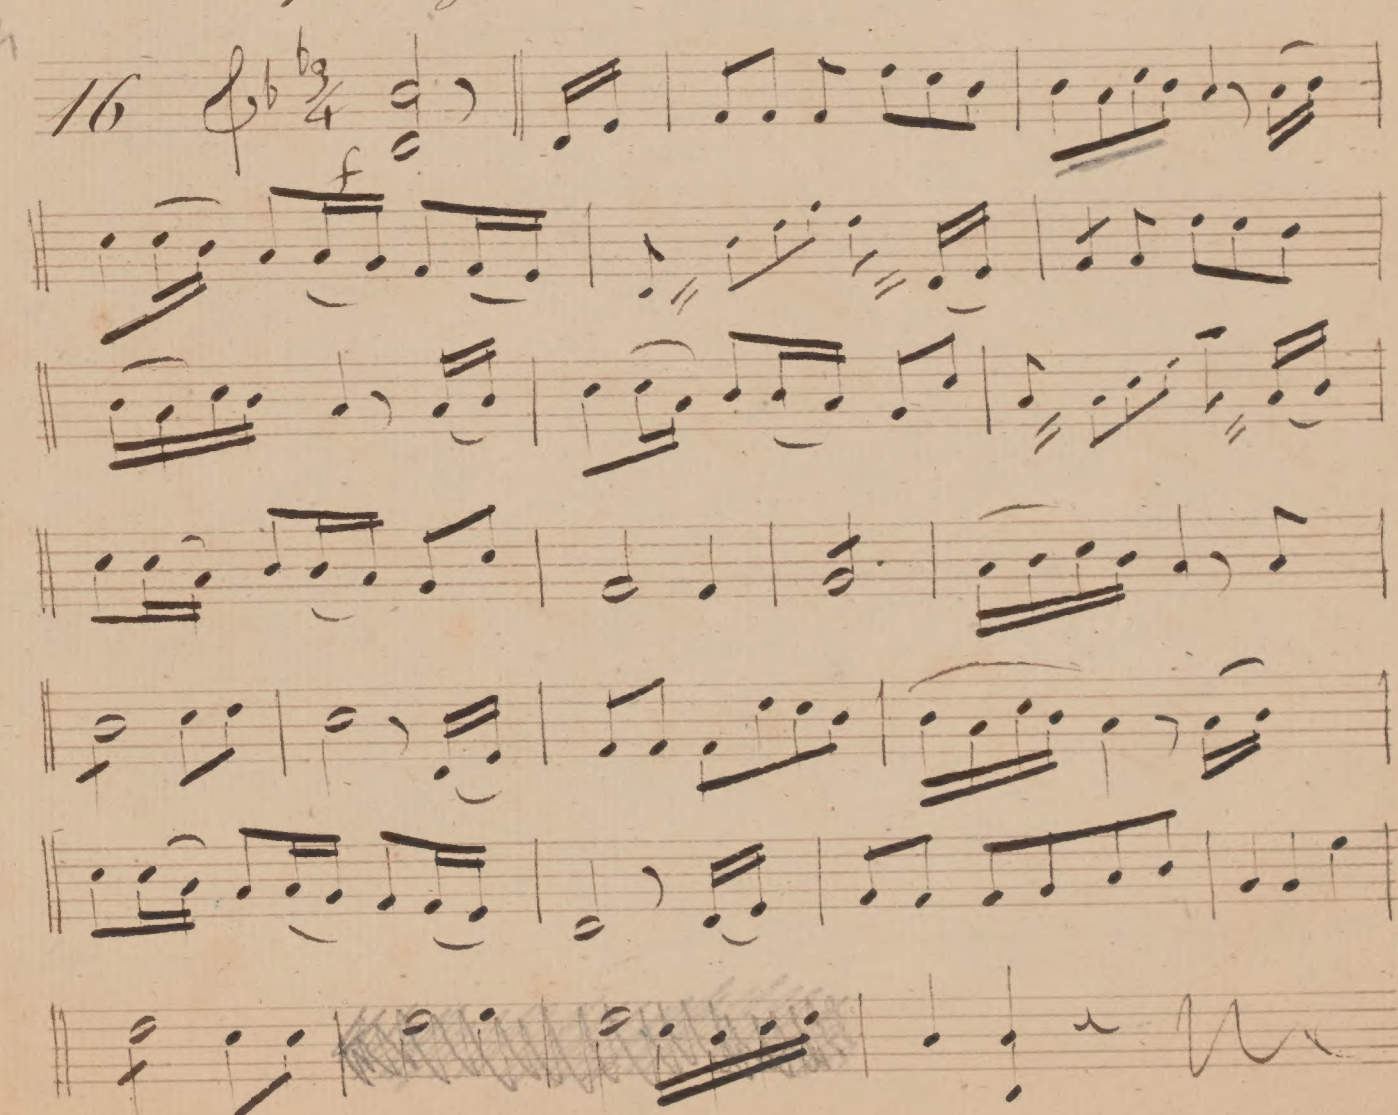 16 3/4
f